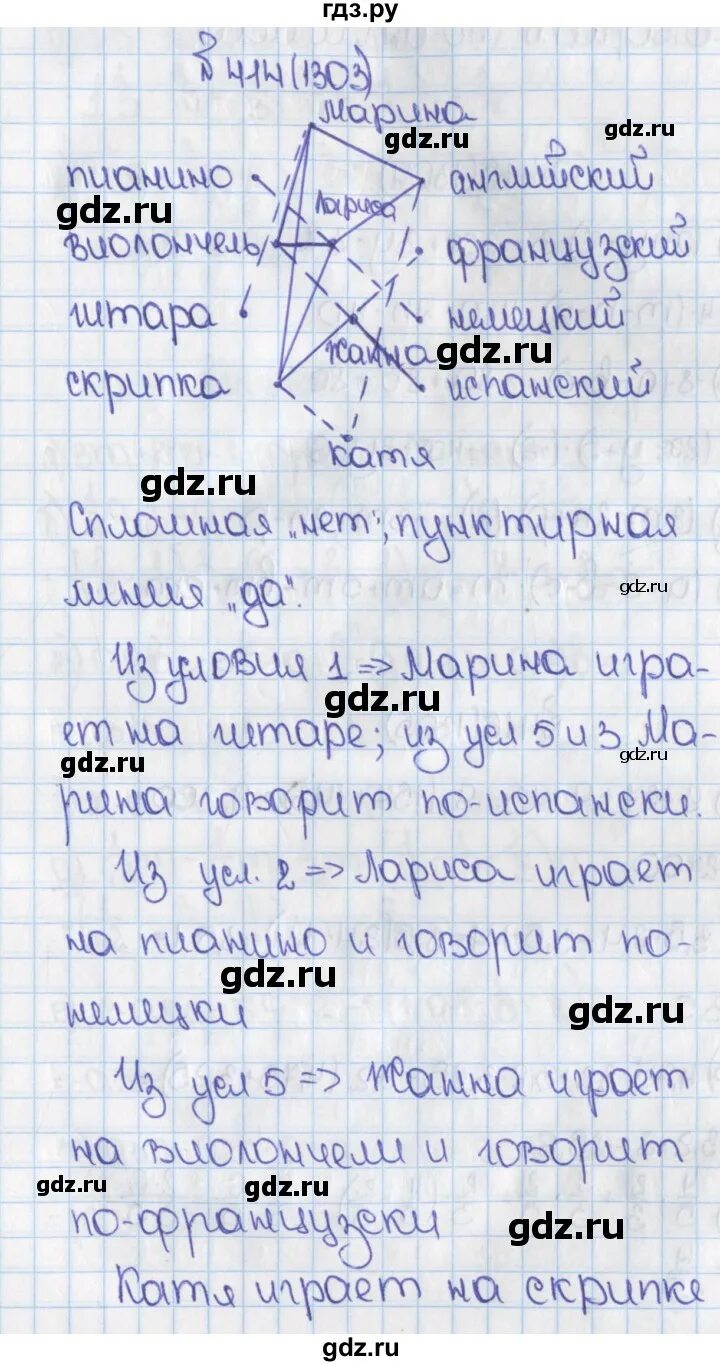 гдз.ру
№414(1303)
Марина
gdz.ru
gdz.ru
пианино
английский
Лариса
gdz.ru
gdz.ru
виолончель
французский
гитара
немецкий
Жанна
gdz.ru
скрипка
испанский
Катя
gdz.ru
Сплошная „нет", пунктирная
линия „да".
gdz.ru
Из условия 1 => Марина игра-
gdz.ru
ет на гитаре; из усл 5 и 3 Ма-
gdz.ru
gdz.ru
рина говорит по-испански.
Из усл. 2 => Лариса играет
на пианино и говорит по-
gdz.ru
немецки
gdz.ru
Из усл 5 => Жанна играет
на виолончели и говорит
gdz.ru
gdz.ru
по-французски
gdz.ru
Катя играет на скрипке
gdz.ru